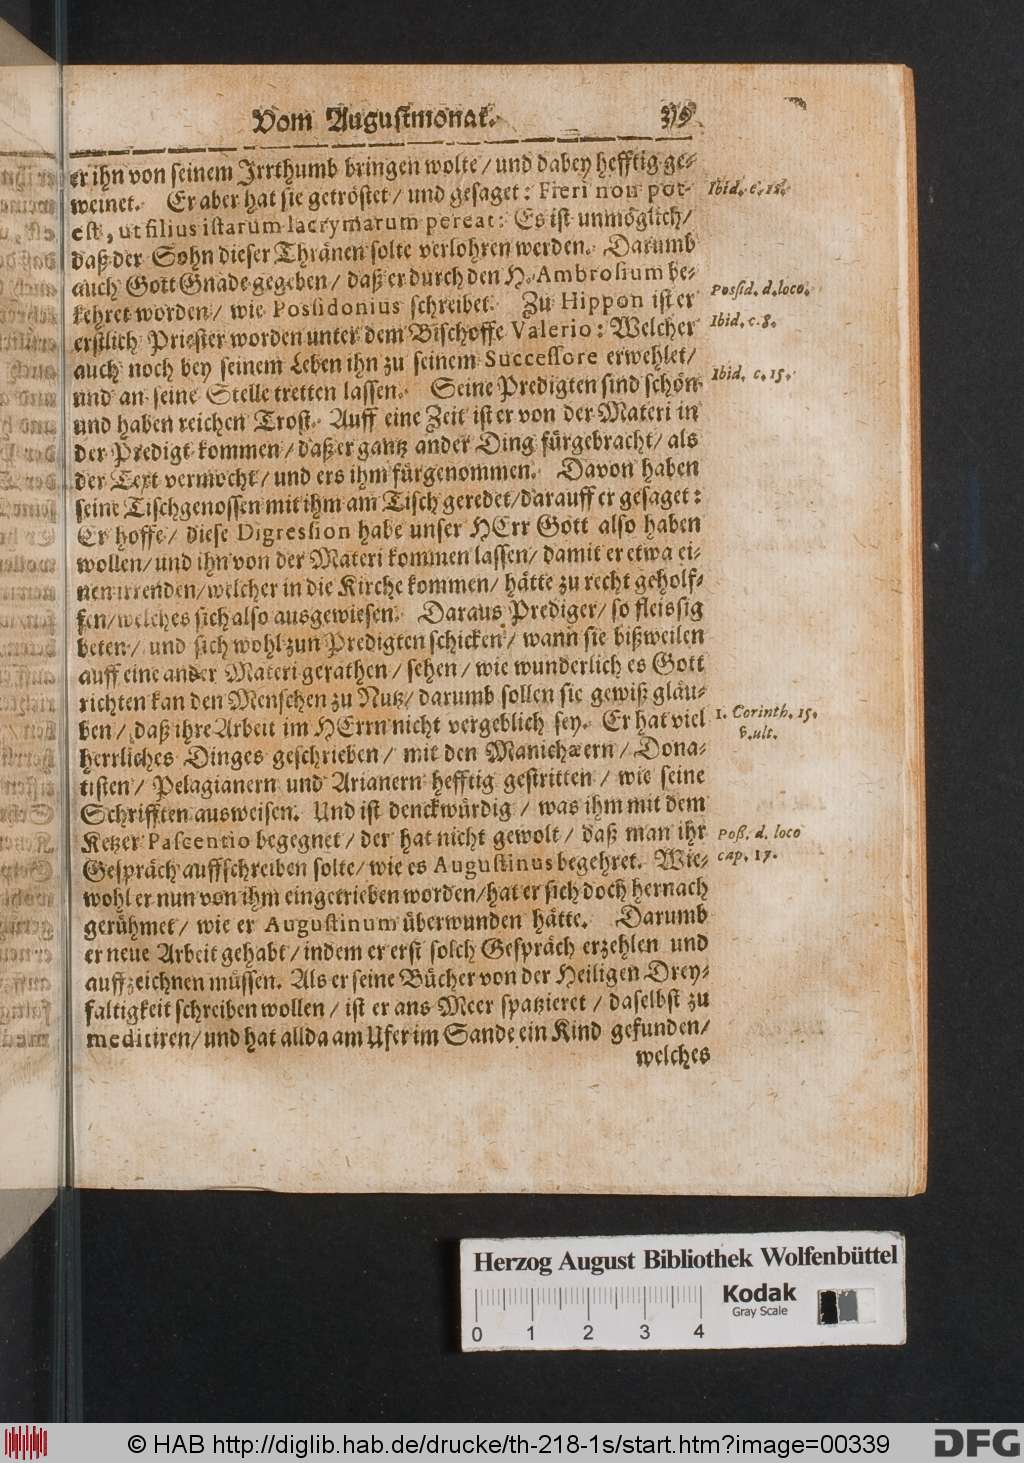 Vom Augustmonat.
er ihn von seinem Irrthumb bringen wolte / und dabey hefftig ge-
weinet. Er aber hat sie getröstet / und gesaget: Fieri non pot-
est, ut filius istarum lacrymarum pereat: Es ist unmöglich /
daß der Sohn dieser Thränen solte verlohren werden. Darumb
auch Gott Gnade gegeben / daß er durch den H. Ambrosium be-
kehret worden / wie Possidonius schreibet. Zu Hippon ist er
erstlich Priester worden unter dem Bischoffe Valerio: Welcher
auch noch bey seinem Leben ihn zu seinem Successore erwehlet /
und an seine Stelle tretten lassen. Seine Predigten sind schön
und haben reichen Trost. Auff eine Zeit ist er von der Materi in
der Predigt kommen / daß er gantz ander Ding fürgebracht / als
der Text vermocht / und ers ihm fürgenommen. Davon haben
seine Tischgenossen mit ihm am Tisch geredet / darauff er gesaget:
Er hoffe / diese Digression habe unser HErr Gott also haben
wollen / und ihn von der Materi kommen lassen / damit er etwa ei-
nen irrenden / welcher in die Kirche kommen / hätte zu recht geholf-
fen / welches sich also ausgewiesen. Daraus Prediger / so fleissig
beten / und sich wohl zun Predigten schicken / wann sie bißweilen
auff eine ander Materi gerathen / sehen / wie wunderlich es Gott
richten kan den Menschen zu Nutz / darumb sollen sie gewiß gläu-
ben / daß ihre Arbeit im HErrn nicht vergeblich sey. Er hat viel
herrliches Dinges geschrieben / mit den Manichæern / Dona-
tisten / Pelagianern und Arianern hefftig gestritten / wie seine
Schrifften ausweisen. Und ist denckwürdig / was ihm mit dem
Ketzer Pascentio begegnet / der hat nicht gewolt / daß man ihr
Gespräch auffschreiben solte / wie es Augustinus begehret. Wie-
wohl er nun von ihm eingetrieben worden / hat er sich doch hernach
gerühmet / wie er Augustinum überwunden hätte. Darumb
er neue Arbeit gehabt / indem er erst solch Gespräch erzehlen und
auffzeichnen müssen. Als er seine Bücher von der Heiligen Drey-
faltigkeit schreiben wollen / ist er ans Meer spatzieret / daselbst zu
meditiren / und hat allda am Ufer im Sande ein Kind gefunden /
welches
Ibid. c. 12.
Possid. d. loco.
Ibid. c. 8.
Ibid. c. 15.
1. Corinth. 15.
v. ult.
Poß. d. loco
cap. 17.
Herzog August Bibliothek Wolfenbüttel
Kodak
Gray Scale
0 1 2 3 4
© HAB http://diglib.hab.de/drucke/th-218-1s/start.htm?image=00339
DFG